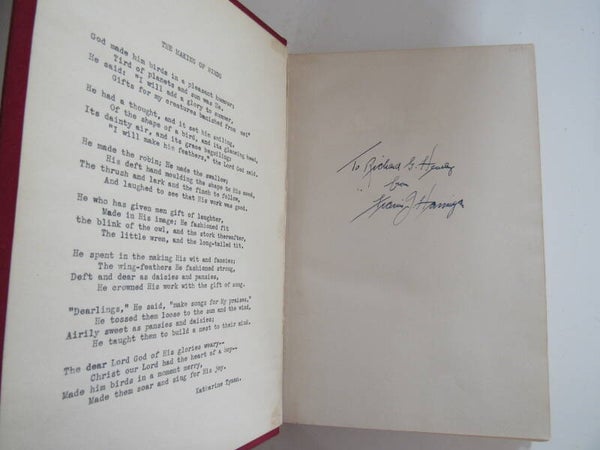 THE MAKING OF BIRDS
God made him birds in a pleasant humour;
Tird of planets and sun was He.
He said: "I will add a glory to summer,
Gifts for my creatures banished from me!"
He had a thought, and it set him smiling,
Of the shape of a bird, and its glancing head,
Its dainty air, and its grace beguiling:
"I will make him feathers," the Lord God said.
He made the robin; He made the swallow;
His deft hand moulding the shape to His mood,
The thrush and lark and the finch to follow,
And laughed to see that His work was good.
He who has given men gift of laughter,
Made in His image; He fashioned fit
the blink of the owl, and the stork thereafter,
The little wren, and the long-tailed tit.
He spent in the making His wit and fancies;
The wing-feathers He fashioned strong,
Deft and dear as daisies and pansies,
He crowned His work with the gift of song.
"Dearlings," He said, "make songs for My praises."
He tossed them loose to the sun and the wind,
Airily sweet as pansies and daisies;
He taught them to build a nest to their mind.
The dear Lord God of His glories weary--
Christ our Lord had the heart of a boy--
Made him birds in a moment merry,
Made them soar and sing for His joy.
Katharine Tynan.
To Richard G. Henley
from
Francis J.